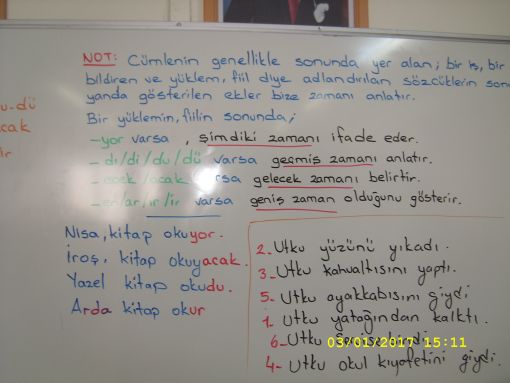 NOT: Cümlenin genellikle sonunda yer alan; bir iş, bir
bildiren ve yüklem, fiil diye adlandırılan sözcüklerin sonu
yanda gösterilen ekler bize zamanı anlatır.
Bir yüklemin, fiilin sonunda;
-yor varsa, şimdiki zamanı ifade eder.
-dı/di/du/dü varsa geçmiş zamanı anlatır.
-ecek/acak varsa gelecek zamanı belirtir.
-er/ar/ır/ir varsa geniş zaman olduğunu gösterir.
u-dü
acak
ir
Nisa, kitap okuyor.
İroş, kitap okuyacak.
Yazel kitap okudu.
Arda kitap okur
2- Utku yüzünü yıkadı.
3- Utku kahvaltısını yaptı.
5- Utku ayakkabısını giydi
1- Utku yatağından kalktı.
6- Utku
4- Utku okul kıyafetini giydi.
03/01/2017 15:11